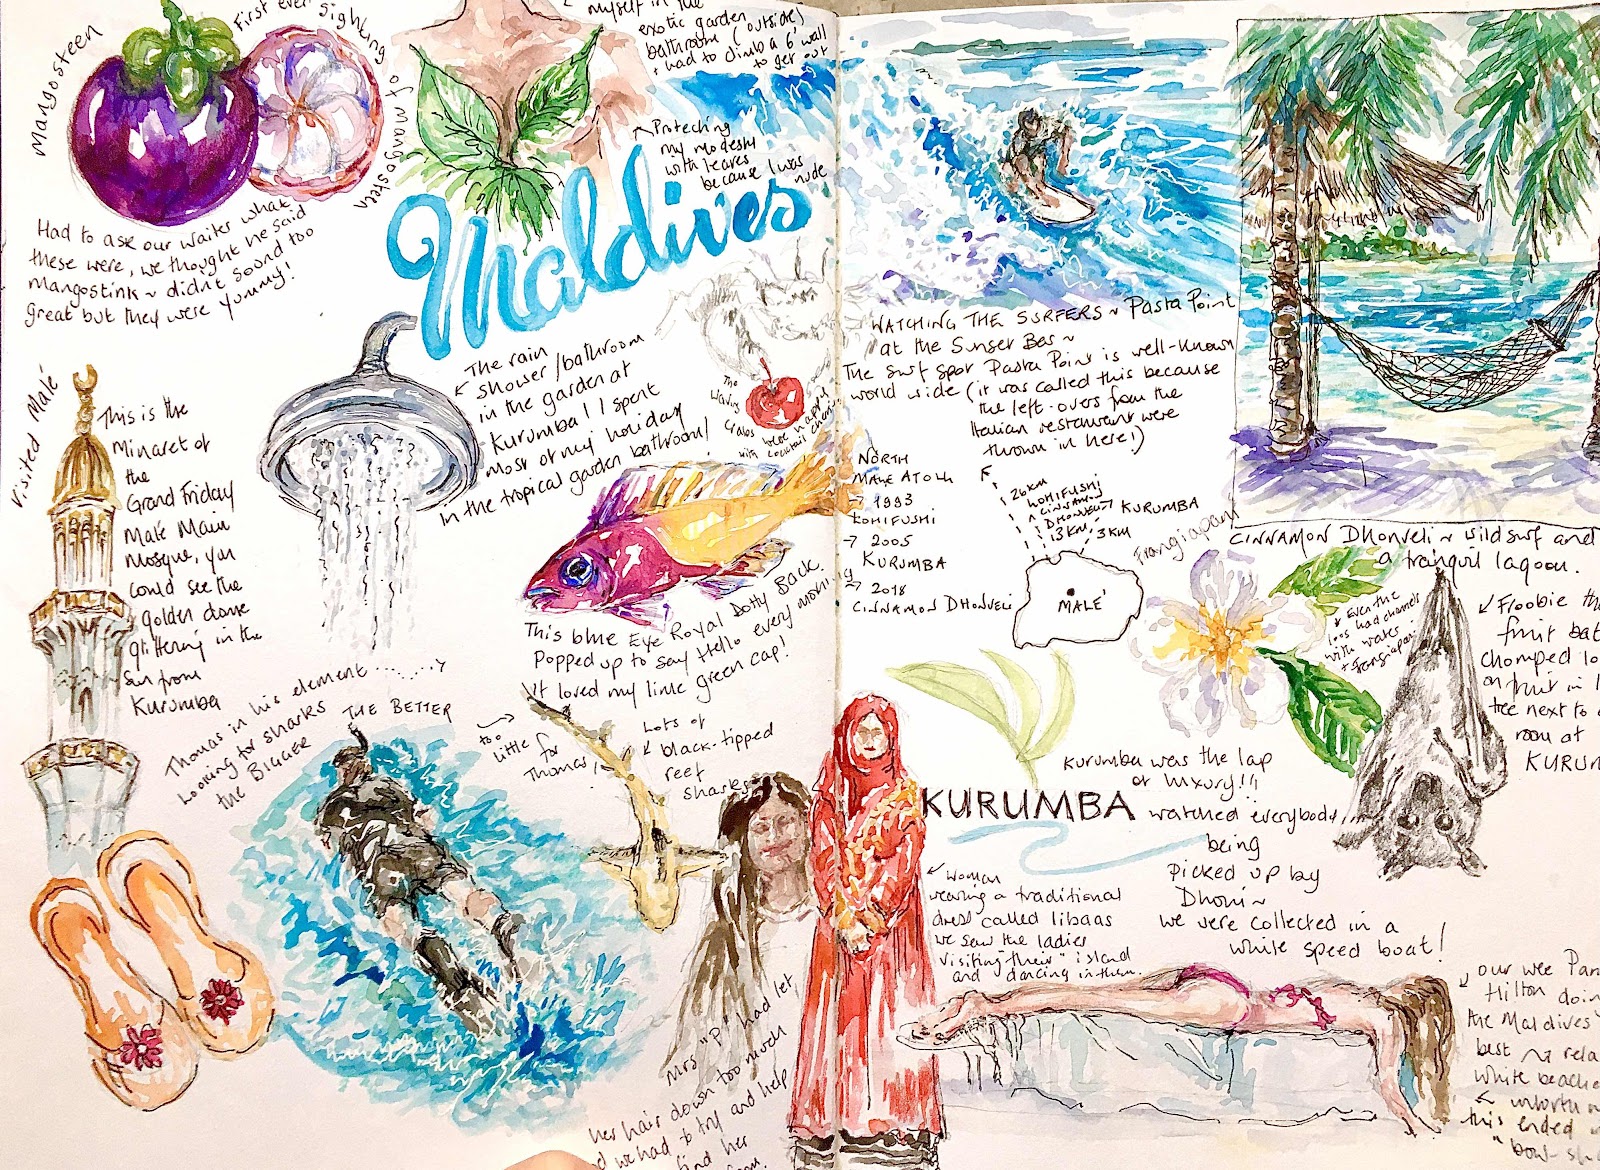 Mangosteen
First ever sighting of Mangosteen
Had to ask our waiter what
these were, we thought he said
mangostink ~ didnt sound too
great but they were yummy!
myself in the
exotic garden
bathroom (outside)
+ had to climb a 6' wall
to get out
Protecting
my modesty
with leaves
because I was
nude
Maldives
The rain
shower/bathroom
in the garden at
Kurumba! I spent
most of my holiday
in the tropical garden bathroom!
The
Crabs were happy
with cocktail
Visited Malé
This is the
Minaret of
the
Grand Friday
Malé Main
Mosque, you
could see the
golden dome
glittering in the
sun from
Kurumba
This blue Eye Royal Dotty Back
Popped up to say Hello every morning
It loved my little green cap!
Thomas in his element
Looking for sharks THE BETTER
the BIGGER
too
little for
Thomas!
Lots of
black-tipped
reef
sharks
Mrs "P" had let
her hair down too much
we had to try and help
find her
WATCHING THE SURFERS ~ Pasta Point
at the Sunset Bar ~
The surf spot Pasta Point is well-known
world wide (it was called this because
the left-overs from the
Italian restaurant were
thrown in here!)
NORTH
MALE ATOLL
→ 1993
LOHIFUSHI
→ 2005
KURUMBA
→ 2018
CINNAMON DHONVELI
26KM
LOHIFUSHI
CINNAMON
DHONVELI
13KM
KURUMBA
3KM
MALE'
Frangiapani
CINNAMON DHONVELI ~ wild surf and
a tranquil lagoon.
Even the
loos had channels
with water
+ frangiapani
Froobie the
fruit bat
chomped
on fruit in
tree next to
room at
KURUM
Kurumba was the lap
of luxury!!!
KURUMBA
watched everybody
being
picked up by
Dhoni ~
we were collected in a
white speed boat!
Woman
wearing a traditional
dress called libaas
we saw the ladies
visiting "their" island
and dancing in them.
our wee
Hilton doing
the Maldives
best ~
white beache
this ended
"bow-